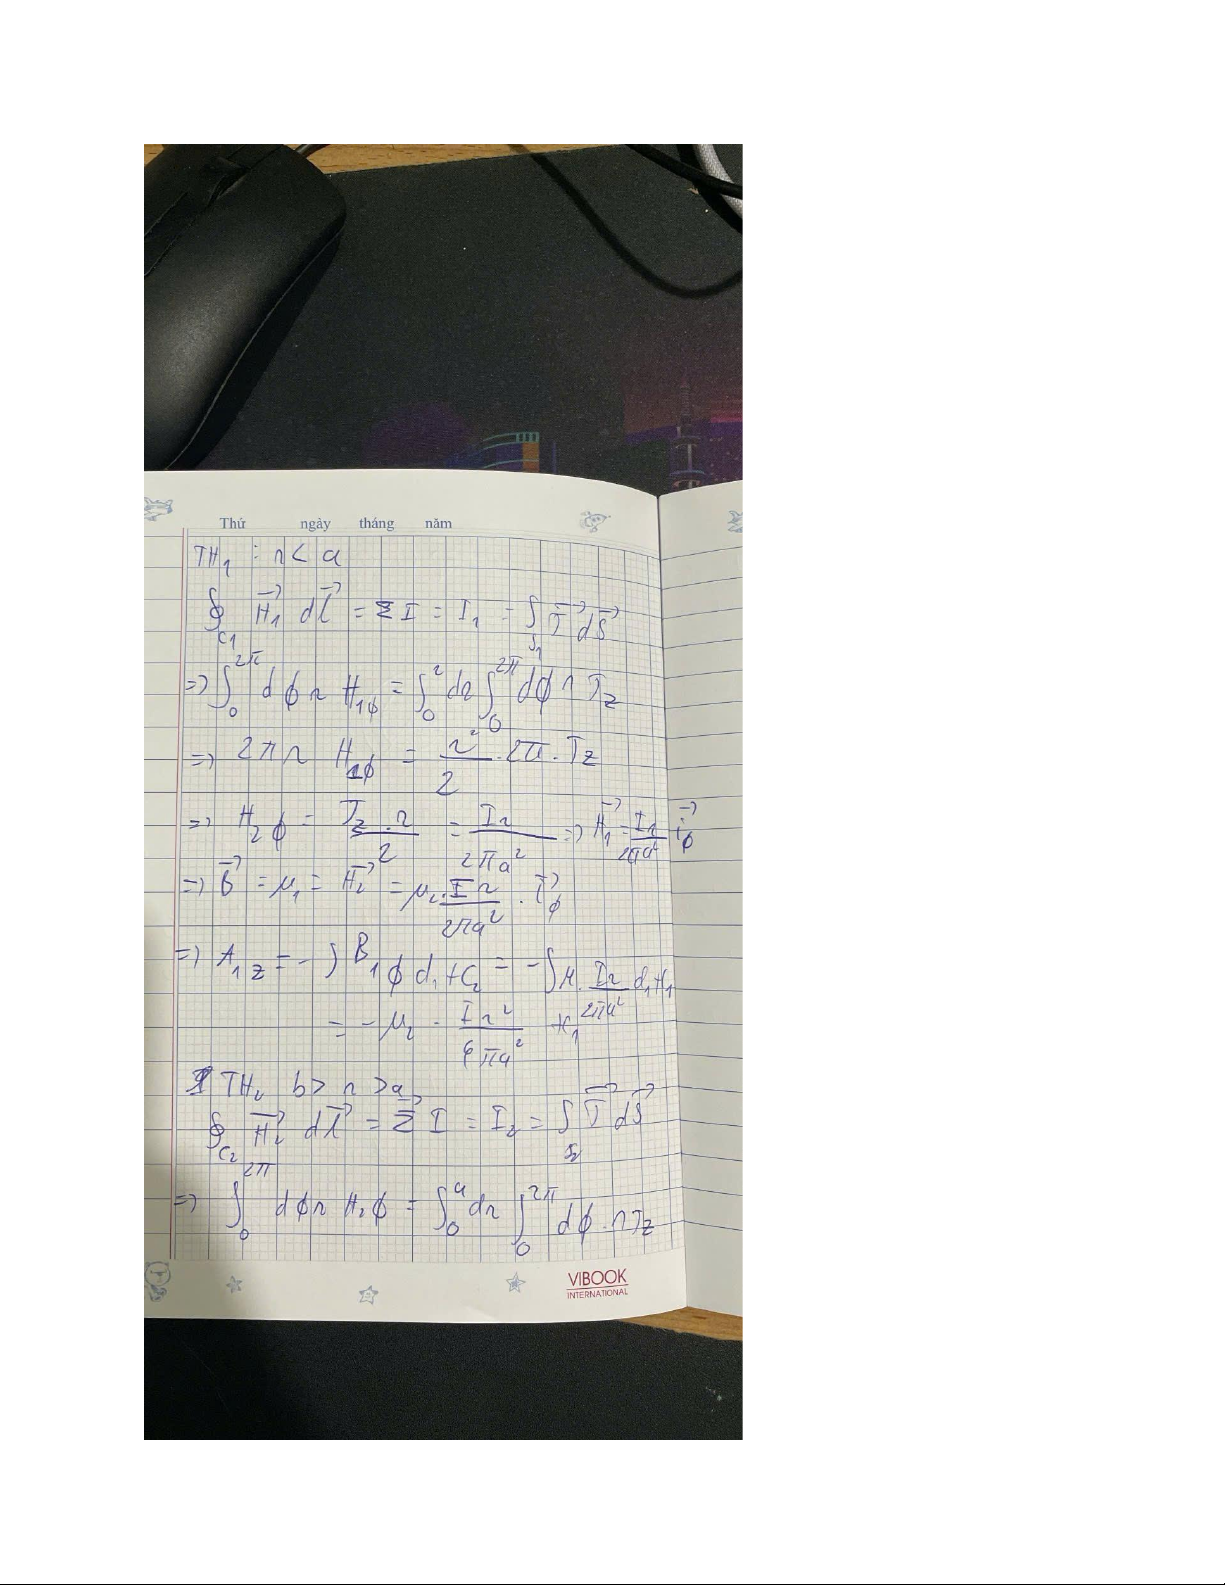 Thứ ngày tháng năm
TH₁ : r < a
∮_C₁ H₁→ dl→ = Σ I = I₁ = ∫_S₁ J→ dS→
=> ∫₀^2π dϕ r H₁ϕ = ∫₀^r dr ∫₀^2π dϕ r J_z
=> 2πr H₁ϕ = r²/2 . 2π . J_z
=> H₂ϕ = J_z . r / 2 = Ir / 2πa² => H₁→ = Ir / 2πa² i→_ϕ
=> B→ = μ₁ = H₂→ = μ₂ . Ir / 2πa² . i→_ϕ
=> A₁z = - ∫ B₁ϕ d₁ + C₂ = - ∫ μ . Ir / 2πa² d₁ + C₁
= - μ₂ . Ir² / 4πa² + C₁
TH₂ b > r > a
∮_C₂ H₂→ dl→ = Σ I = I₂ = ∫_S₂ J→ dS→
=> ∫₀^2π dϕ r H₂ϕ = ∫₀^a dr ∫₀^2π dϕ . r J_z
VIBOOK
INTERNATIONAL